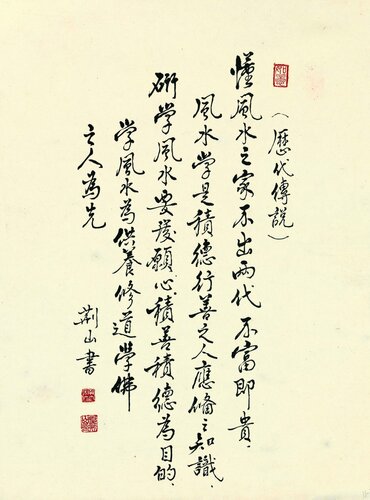 （歷代傳說）
懂風水之家不出兩代 不富即貴.
風水學是積德行善之人應備之知識.
研學風水要發願心積善積德為目的.
學風水為供養修道學佛
之人為先
荊山書